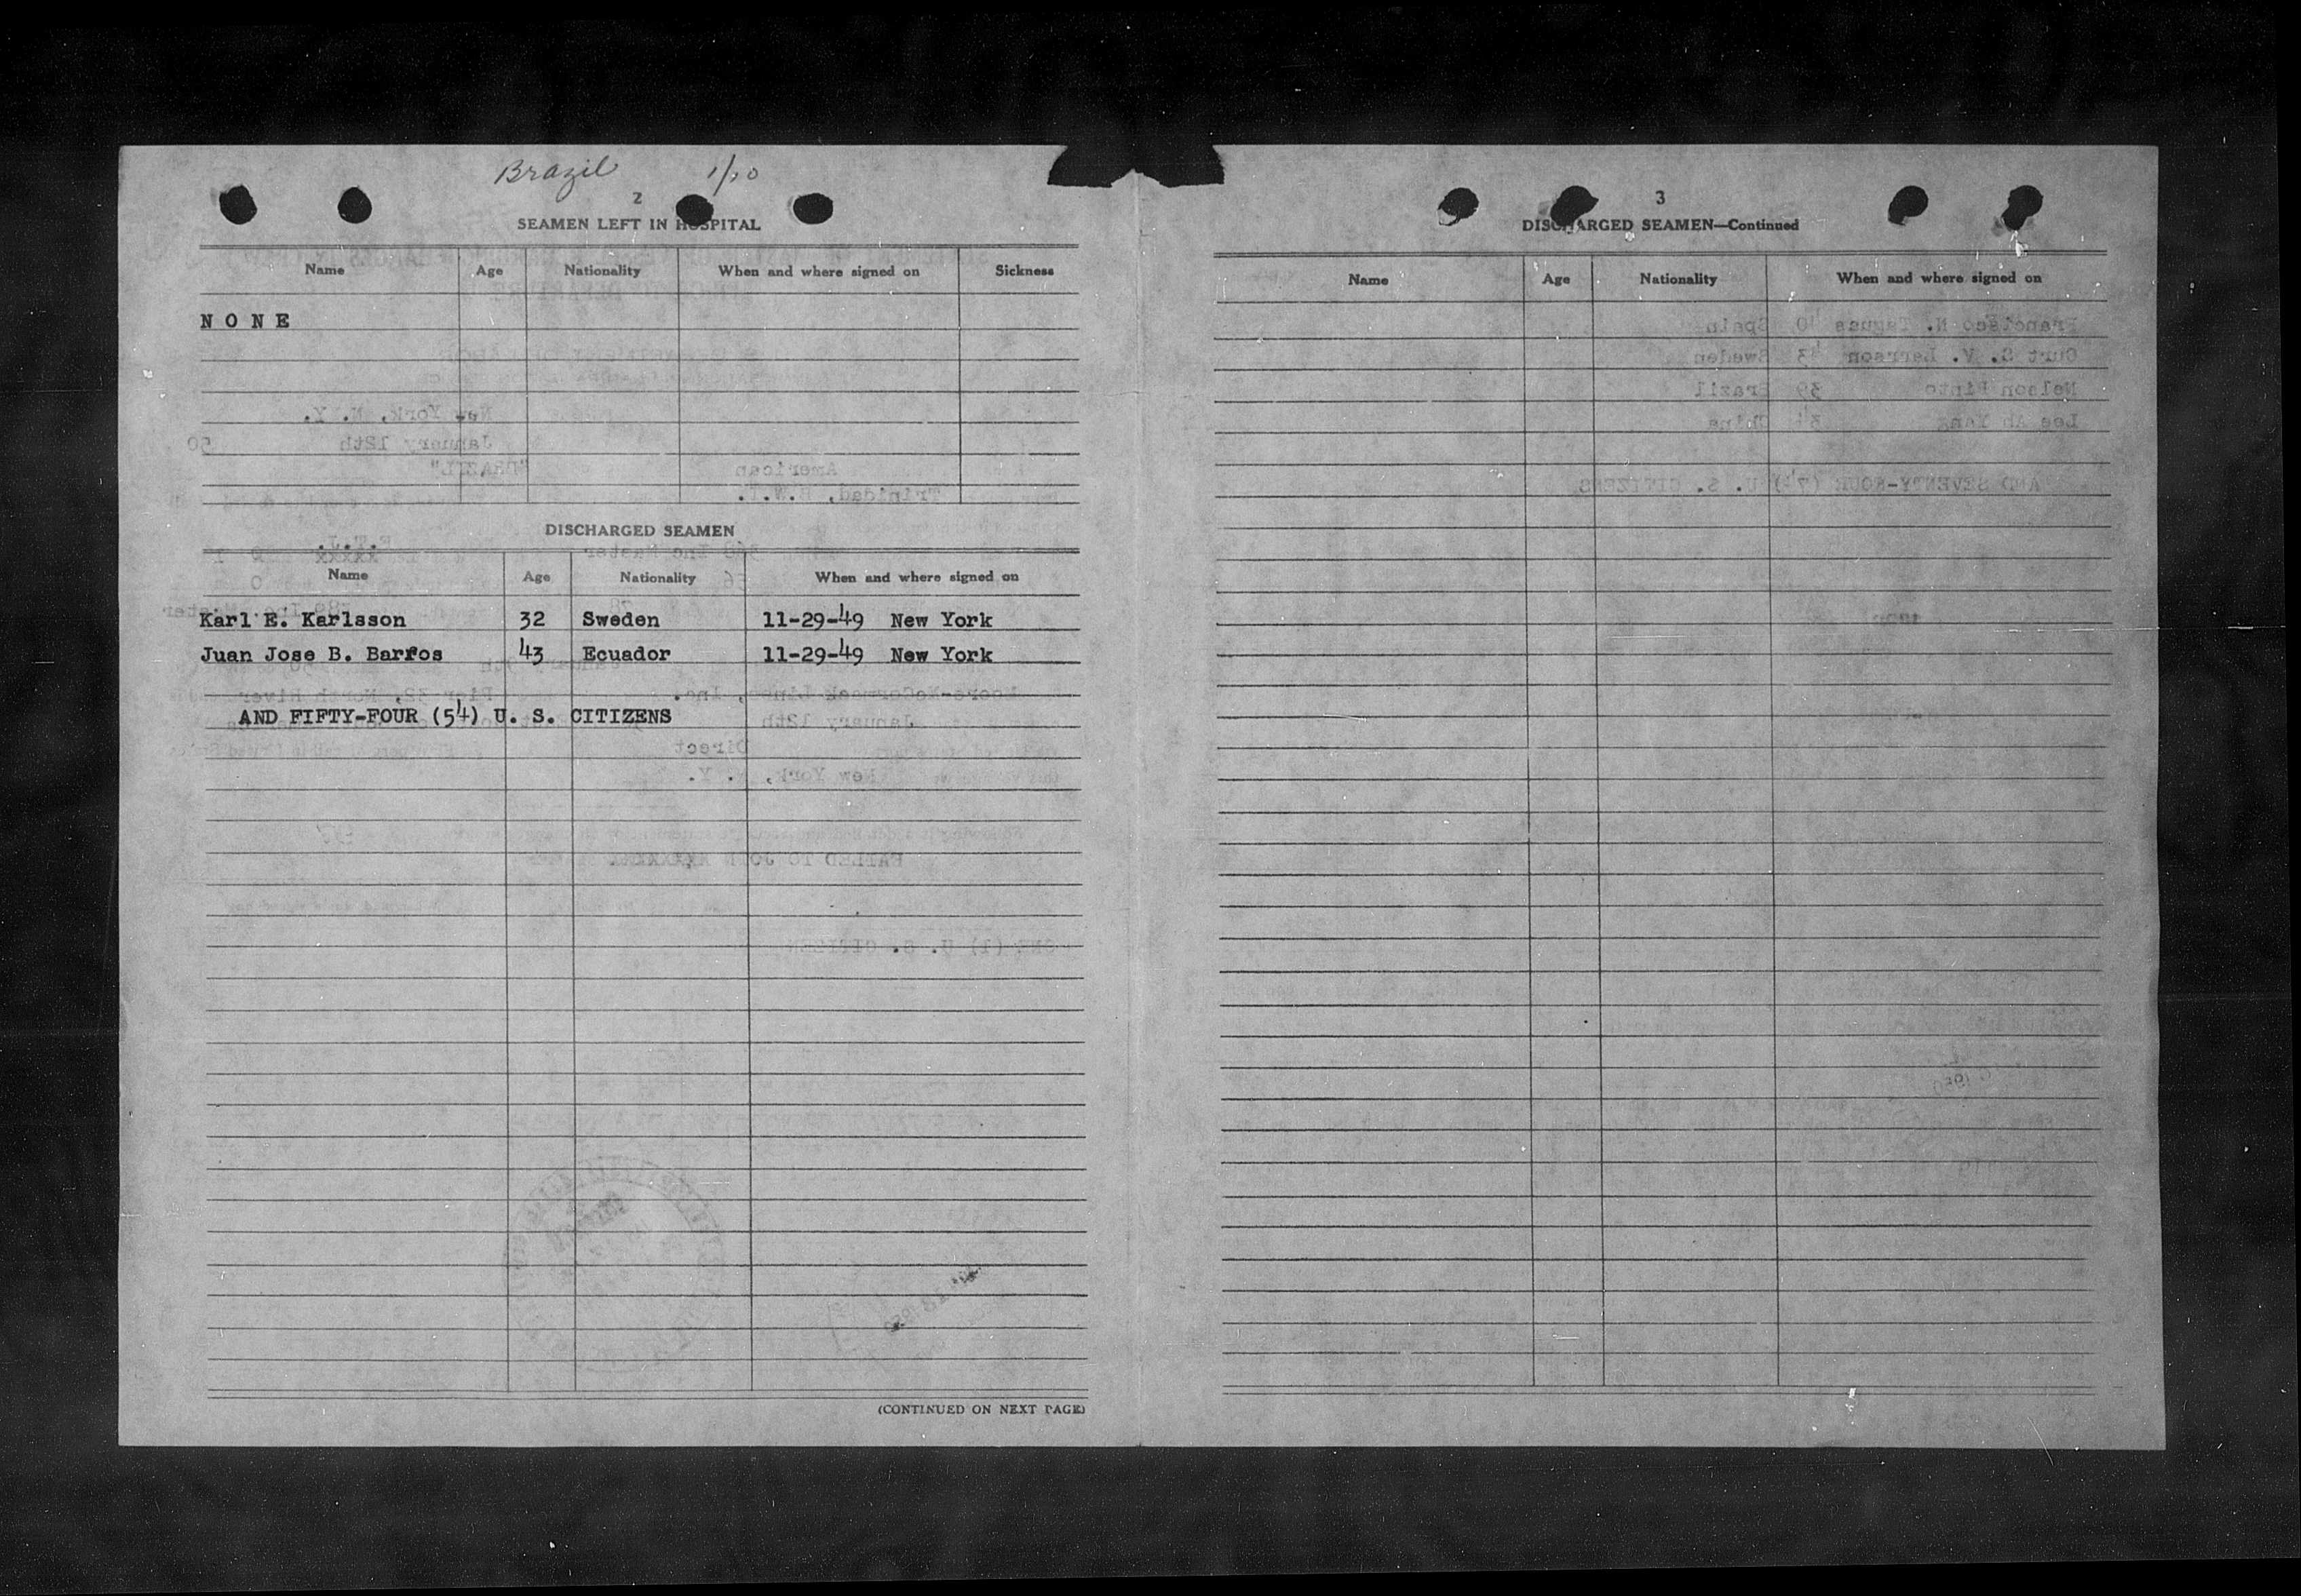 Brazil 1/10
2
SEAMEN LEFT IN HOSPITAL
Name Age Nationality When and where signed on Sickness
N O N E
DISCHARGED SEAMEN
Name Age Nationality When and where signed on
Karl E. Karlsson 32 Sweden 11-29-49 New York
Juan Jose B. Barros 43 Ecuador 11-29-49 New York
AND FIFTY-FOUR (54) U. S. CITIZENS
(CONTINUED ON NEXT PAGE)
3
DISCHARGED SEAMEN—Continued
Name Age Nationality When and where signed on